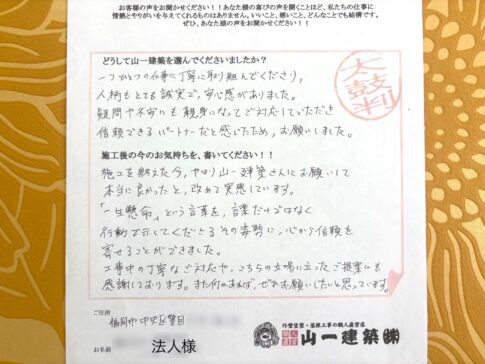 お客様の声をお聞かせください！！あなた様の喜びの声を聞くことほど、私たちの仕事に
情熱とやりがいを与えてくれるものはありません。いいこと、悪いこと、どんなことでも結構です。
ぜひ、あなた様の声をお聞かせください！！
どうして山一建築を選んでくださいましたか？
一つひとつの仕事に丁寧に取り組んでくださり、
人柄もとても誠実で、安心感がありました。
疑問や不安にも親身になってご対応していただき
信頼できるパートナーだと感じたため、お願いしました。
太鼓判
施工後の今のお気持ちを、書いてください！！
施工を終えた今、やはり山一建築さんにお願いして
本当に良かったと、改めて実感しています。
「一生懸命」という言葉を、言葉だけではなく
行動で示してくださるその姿勢に、心から信頼を
寄せることができました。
工事中の丁寧なご対応や、こちらの立場に立ったご提案にも
感謝しております。また何かあれば、ぜひお願いしたいと思っています。
ご住所
福岡市中央区警固
お名前
法人様
外壁塗装・屋根工事の職人直営店
山一建築㈱